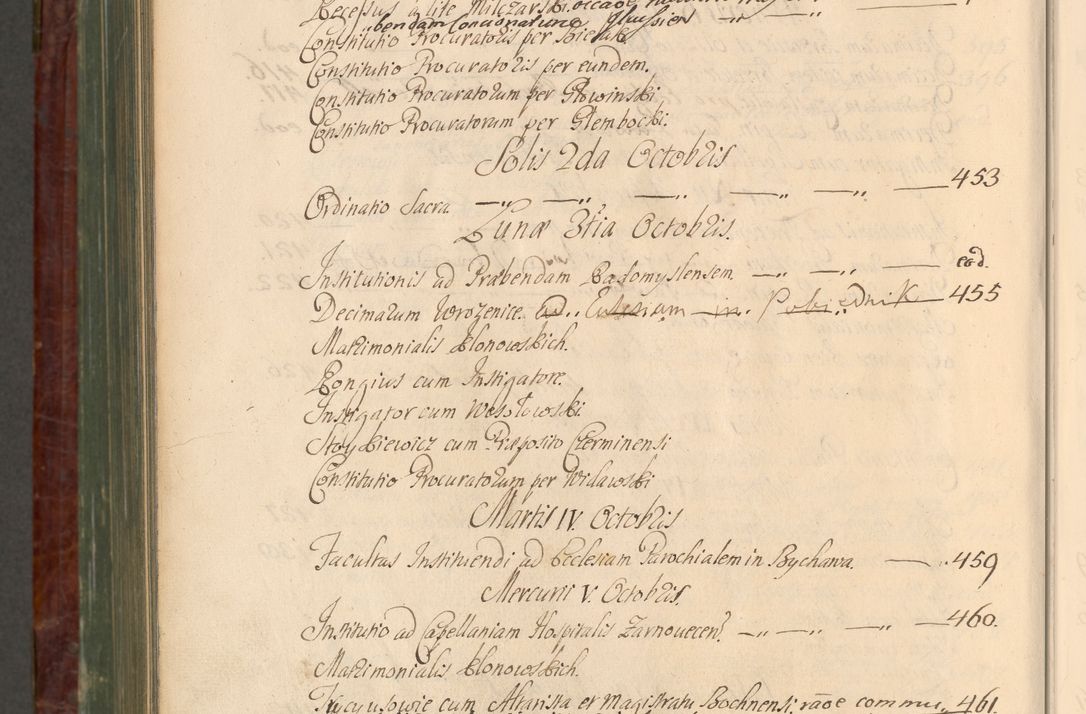 Recessus a lite Milczarski
bendam Concionatura
Constitutio Procuratoris per
Constitutio Procuratoris per eundem.
Constitutio Procuratorum per Głowinski
Constitutio Procuratorum per Glembocki.
Solis 2da Octobris
Ordinatio Sacra —„ —„ —„ —„ —„ — 453
Lunæ 3tia Octobris.
Institutionis ad Præbendam Radomyslensem —„ —„ — eod.
Decimarum Wrozenice. ad in Pobiednik — 455
Matrimonialis Klonowskich.
Rongius cum Instigatore.
Instigator cum Wesołowski.
Stoykiewicz cum Præposito Czerminensi
Constitutio Procuratorum per Widawski
Martis IV. Octobris
Facultas Instituendi ad Ecclesiam Parochialem in Bychawa. — 459
Mercurii V. Octobris.
Institutio ad Capellaniam Hospitalis Zarnovecen. —„ —„ —„ — 460.
Matrimonialis Klonowskich.
cum Altarista et Magistratu Bochnensi rãoe commu. 461.